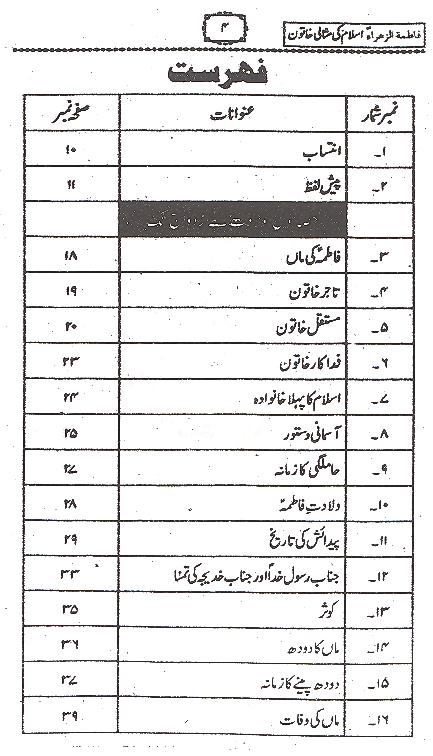 فاطمۃ الزھراءؑ اسلام کی مثالی خاتون
۴
فہرست
نمبر شمار عنوانات صفحہ نمبر
۱۔ انتساب ۱۰
۲۔ پیش لفظ ۱۱
ولادت سے ازدواج تک
۳۔ فاطمہؑ کی ماں ۱۸
۴۔ تاجر خاتون ۱۹
۵۔ مستقل خاتون ۲۰
۶۔ فداکار خاتون ۲۳
۷۔ اسلام کا پہلا خانوادہ ۲۴
۸۔ آسمانی دستور ۲۵
۹۔ حاملگی کا زمانہ ۲۷
۱۰۔ ولادتِ فاطمہؑ ۲۸
۱۱۔ پیدائش کی تاریخ ۲۹
۱۲۔ جناب رسول خداؐ اور جناب خدیجہ کی تمنا ۳۳
۱۳۔ کوثر ۳۵
۱۴۔ ماں کا دودھ ۳۶
۱۵۔ دودھ پینے کا زمانہ ۳۷
۱۶۔ ماں کی وفات ۳۹